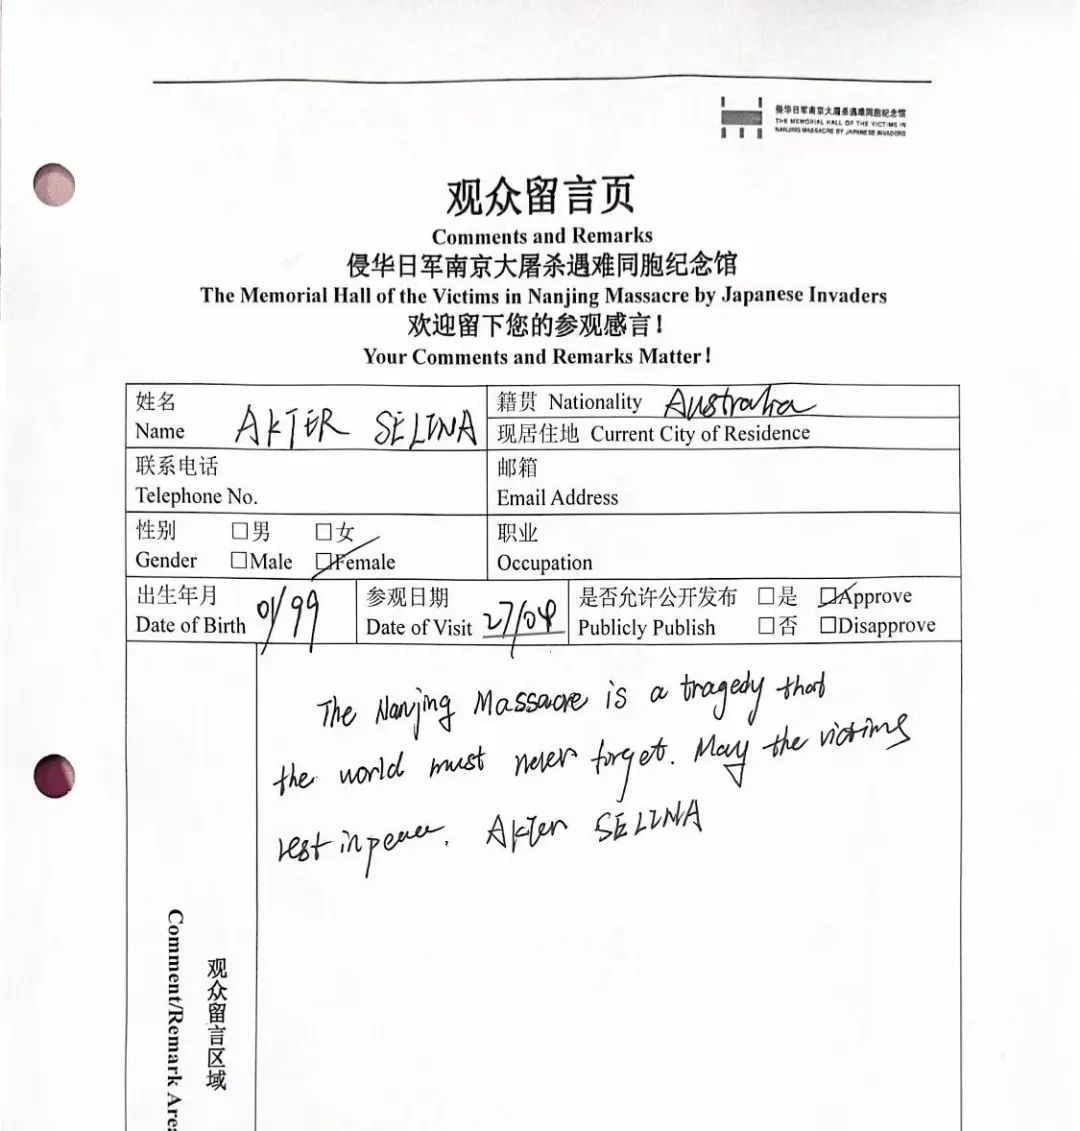 侵华日军南京大屠杀遇难同胞纪念馆
THE MEMORIAL HALL OF THE VICTIMS IN
NANJING MASSACRE BY JAPANESE INVADERS
观众留言页
Comments and Remarks
侵华日军南京大屠杀遇难同胞纪念馆
The Memorial Hall of the Victims in Nanjing Massacre by Japanese Invaders
欢迎留下您的参观感言！
Your Comments and Remarks Matter！
姓名
Name AKTER SELINA
籍贯 Nationality Australia
现居住地 Current City of Residence
联系电话
Telephone No.
邮箱
Email Address
性别 □男 □女
Gender □Male □Female
职业
Occupation
出生年月
Date of Birth 01/99
参观日期
Date of Visit 27/04
是否允许公开发布 □是 □Approve
Publicly Publish □否 □Disapprove
The Nanjing Massacre is a tragedy that
the world must never forget. May the victims
rest in peace. AKTER SELINA
观众留言区域
Comment/Remark Area